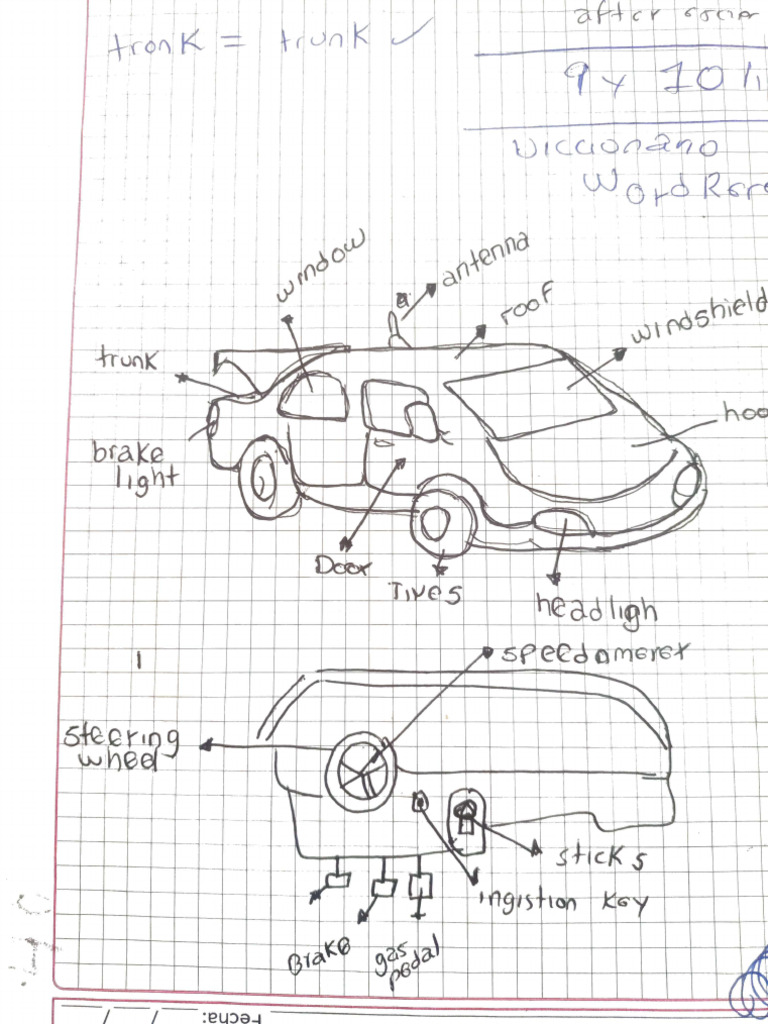 after
tronk = trunk ✓
9 y 10
Diccionario
Word
window
antenna
roof
windshield
trunk
hoo
brake
light
Door
Tires
headligh
1
speedometer
steering
wheel
sticks
ingistion key
Brake
gas
pedal
Fecha: